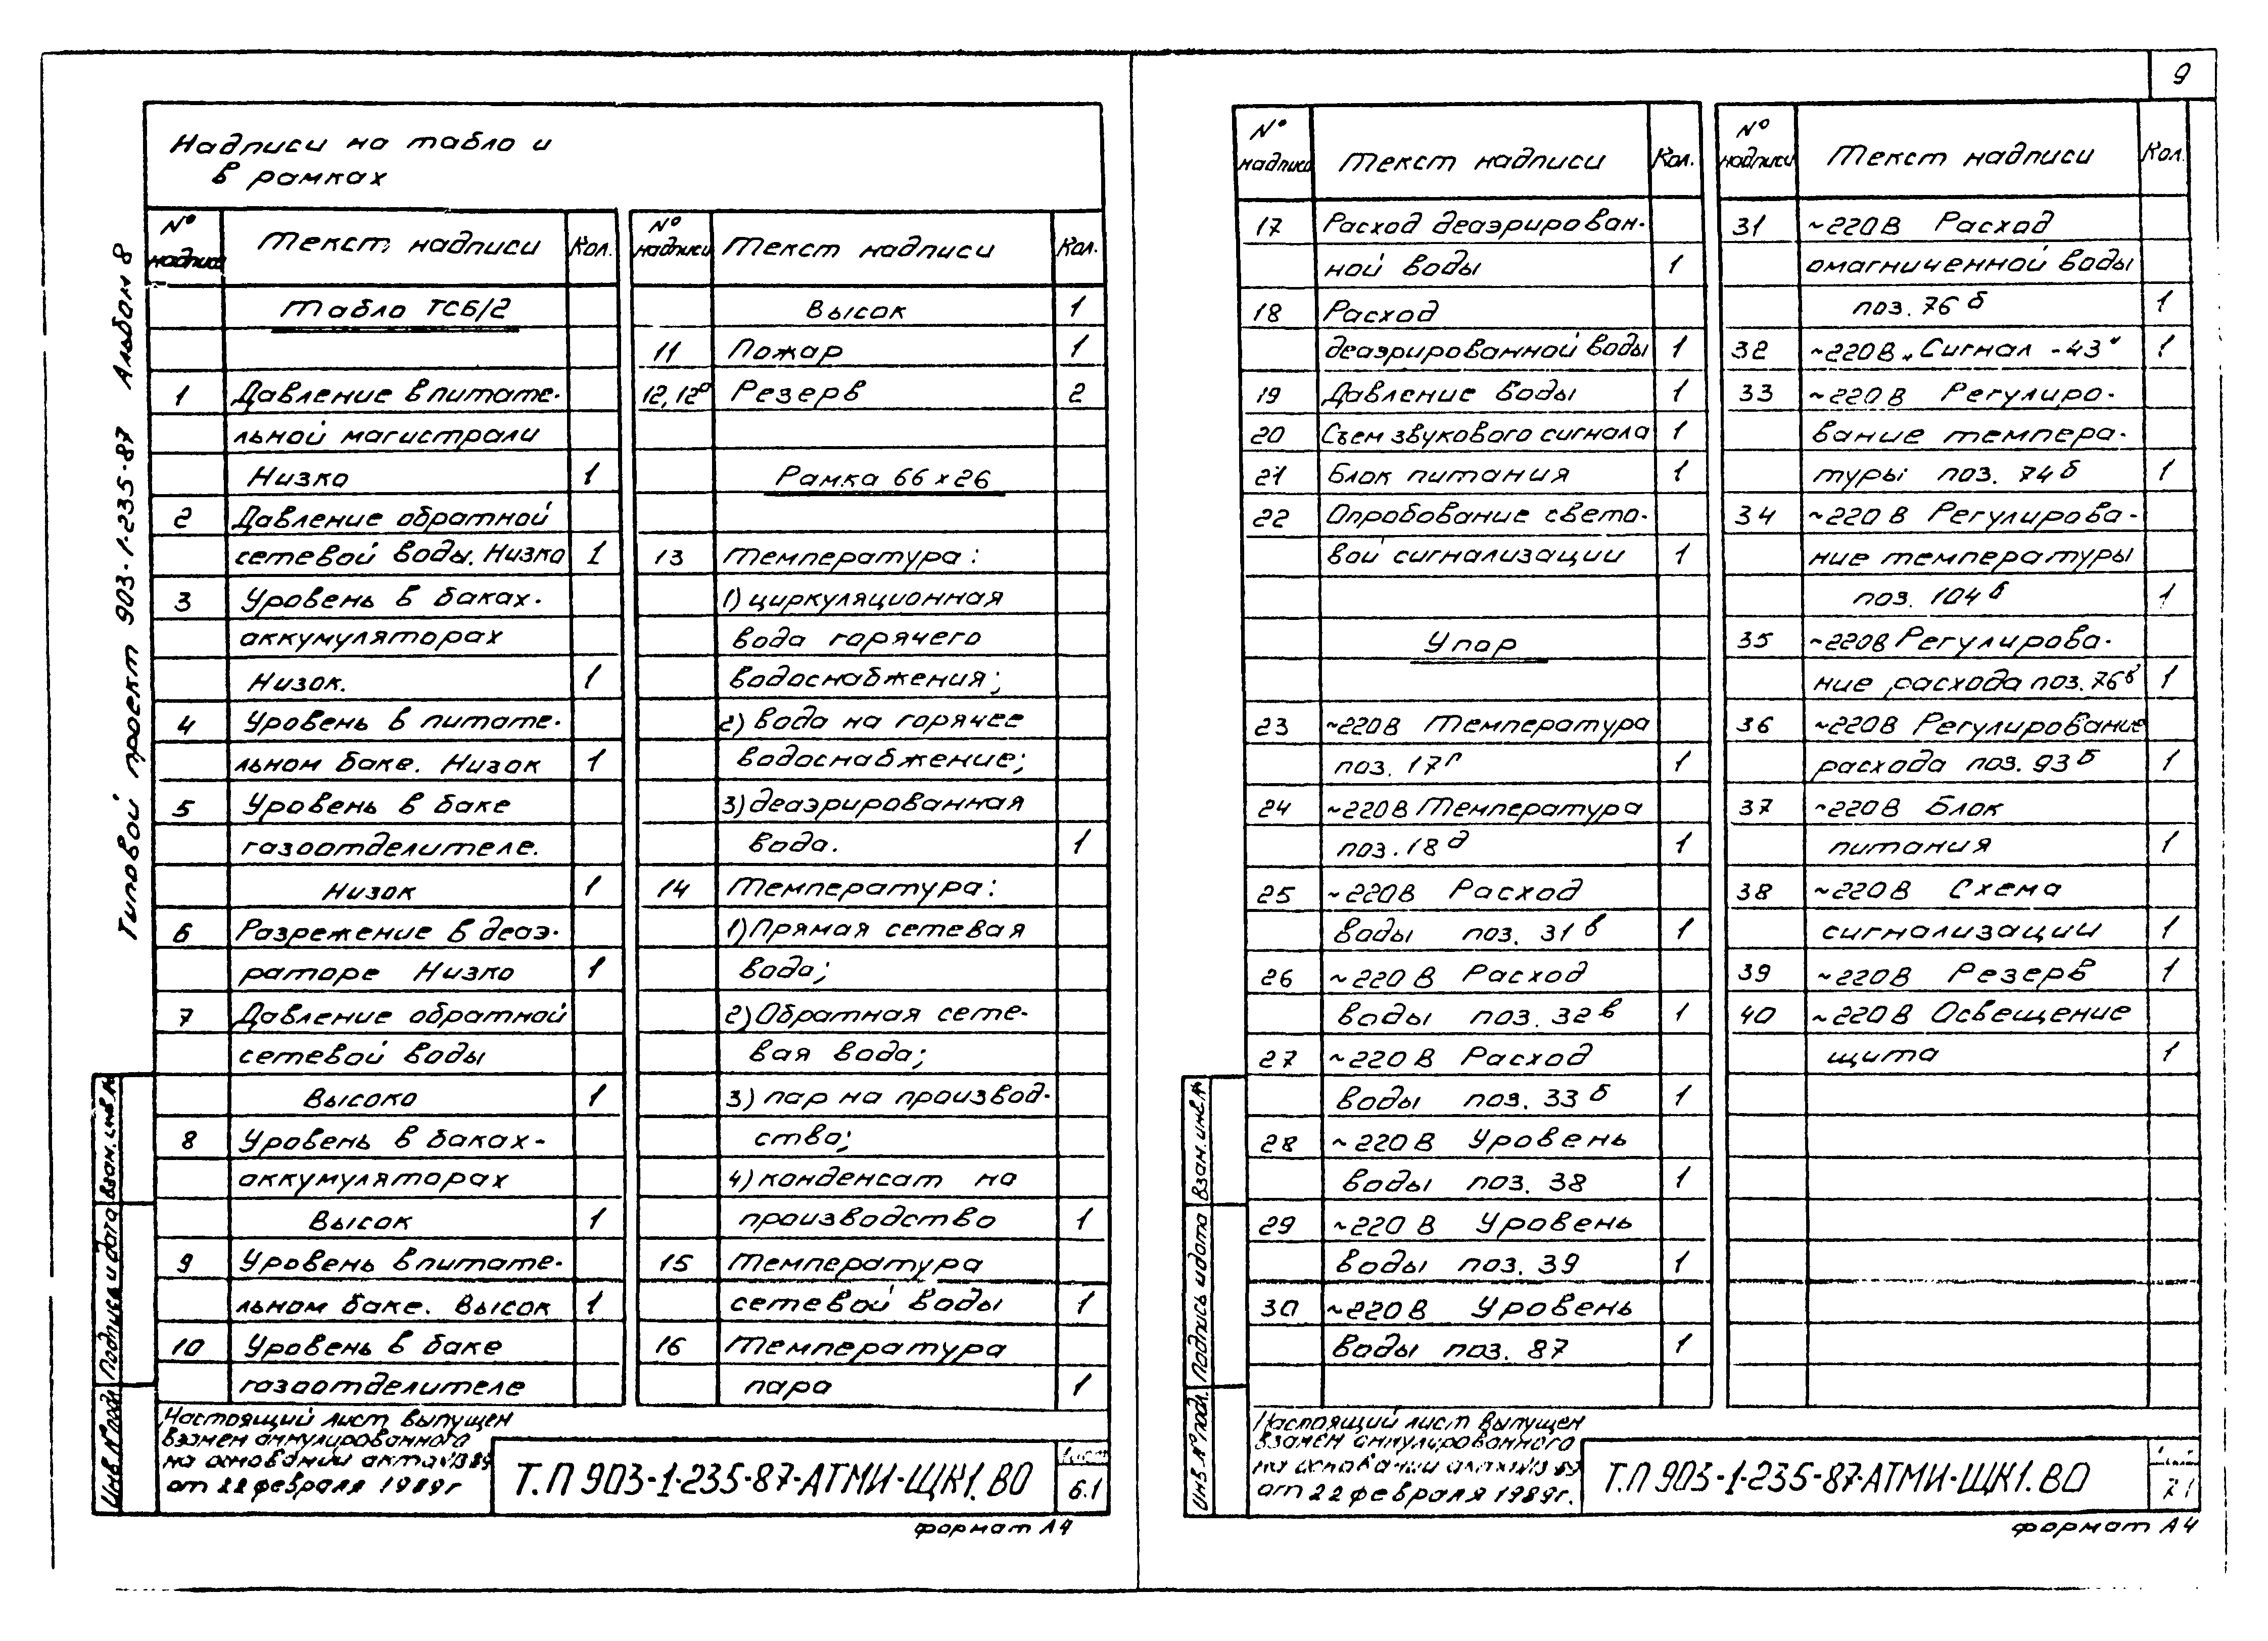 9
Типовой проект 903-1-235-87 Альбом 8
Надписи на табло и
в рамках
№ надписи Текст надписи Кол.
Табло ТСБ/2
1 Давление в питате-
льной магистрали
Низко 1
2 Давление обратной
сетевой воды. Низко 1
3 Уровень в баках-
аккумуляторах
Низок. 1
4 Уровень в питате-
льном баке. Низок 1
5 Уровень в баке
газоотделителе.
Низок 1
6 Разрежение в деаэ-
раторе Низко 1
7 Давление обратной
сетевой воды
Высоко 1
8 Уровень в баках-
аккумуляторах
Высок 1
9 Уровень в питате-
льном баке. Высок 1
10 Уровень в баке
газоотделителе
№ надписи Текст надписи Кол.
Высок 1
11 Пожар 1
12, 12а Резерв 2
Рамка 66х26
13 Температура:
1) циркуляционная
вода горячего
водоснабжения;
2) вода на горячее
водоснабжение;
3) деаэрированная
вода. 1
14 Температура:
1) Прямая сетевая
вода;
2) Обратная сете-
вая вода;
3) пар на производ-
ство;
4) конденсат на
производство 1
15 Температура
сетевой воды 1
16 Температура
пара 1
Настоящий лист выпущен
взамен аннулированного
на основании акта
от 22 февраля 1989г
Т.П 903-1-235-87-АТМИ-ЩК1.ВО
Лист
6.1
формат А4
Инв. № подл. Подпись и дата Взам. инв. №
№ надписи Текст надписи Кол.
17 Расход деаэрирован-
ной воды 1
18 Расход
деаэрированной воды 1
19 Давление воды 1
20 Съем звукового сигнала 1
21 Блок питания 1
22 Опробование свето-
вой сигнализации 1
Упор
23 ~220В Температура
поз. 17г 1
24 ~220В Температура
поз. 18д 1
25 ~220В Расход
воды поз. 31в 1
26 ~220В Расход
воды поз. 32в 1
27 ~220В Расход
воды поз. 33б 1
28 ~220В Уровень
воды поз. 38 1
29 ~220В Уровень
воды поз. 39 1
30 ~220В Уровень
воды поз. 87 1
№ надписи Текст надписи Кол.
31 ~220В Расход
омагниченной воды
поз. 76б 1
32 ~220В „Сигнал-43" 1
33 ~220В Регулиро-
вание темпера-
туры поз. 74б 1
34 ~220В Регулирова-
ние температуры
поз. 104б 1
35 ~220В Регулирова-
ние расхода поз. 76в 1
36 ~220В Регулирование
расхода поз. 93б 1
37 ~220В Блок
питания 1
38 ~220В Схема
сигнализации 1
39 ~220В Резерв 1
40 ~220В Освещение
щита 1
Настоящий лист выпущен
взамен аннулированного
на основании
от 22 февраля 1989г.
Т.П 903-1-235-87-АТМИ-ЩК1.ВО
7.1
формат А4
Инв. № подл. Подпись и дата Взам. инв. №